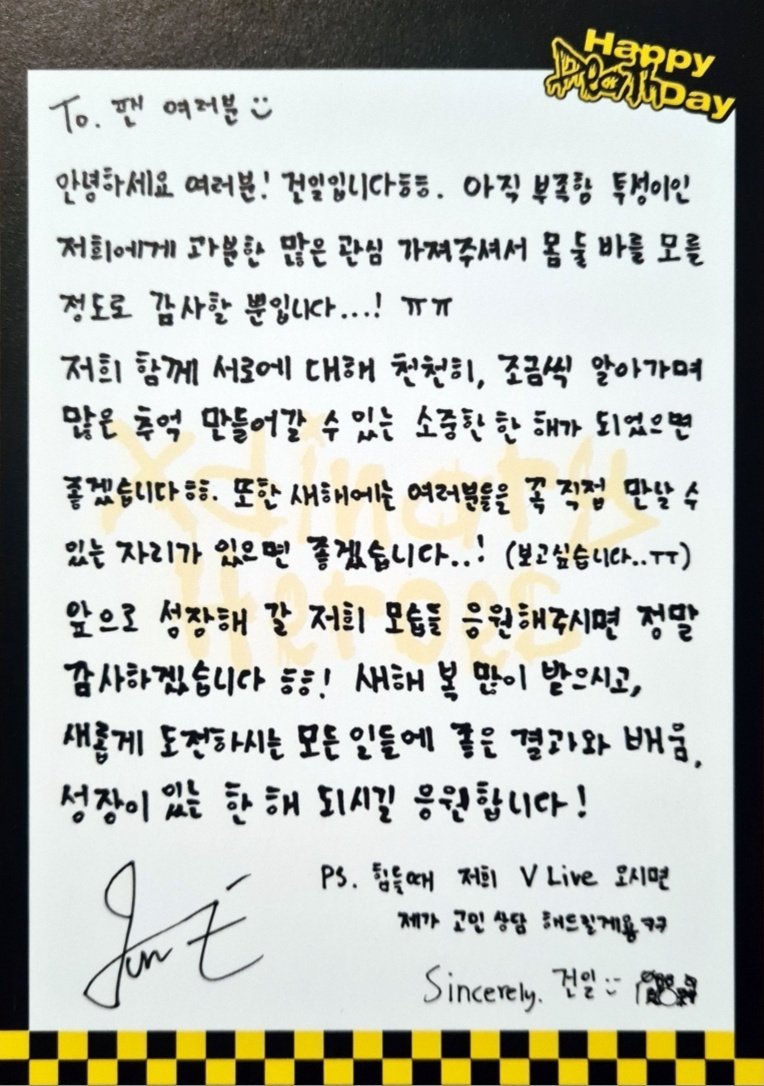 Happy
Death
Day
To. 팬 여러분
안녕하세요 여러분! 건일입니다ㅎㅎ. 아직 부족함 투성이인
저희에게 과분한 많은 관심 가져주셔서 몸 둘 바를 모를
정도로 감사할 뿐입니다...! ㅠㅠ
저희 함께 서로에 대해 천천히, 조금씩 알아가며
많은 추억 만들어갈 수 있는 소중한 한 해가 되었으면
좋겠습니다ㅎㅎ. 또한 새해에는 여러분들을 꼭 직접 만날 수
있는 자리가 있으면 좋겠습니다..! (보고싶습니다..ㅠㅠ)
앞으로 성장해 갈 저희 모습들 응원해주시면 정말
감사하겠습니다 ㅎㅎ! 새해 복 많이 받으시고,
새롭게 도전하시는 모든 일들에 좋은 결과와 배움,
성장이 있는 한 해 되시길 응원합니다!
Xdinary
Heroes
PS. 힘들때 저희 V Live 오시면
제가 고민 상담 해드릴게용ㅋㅋ
Sincerely. 건일